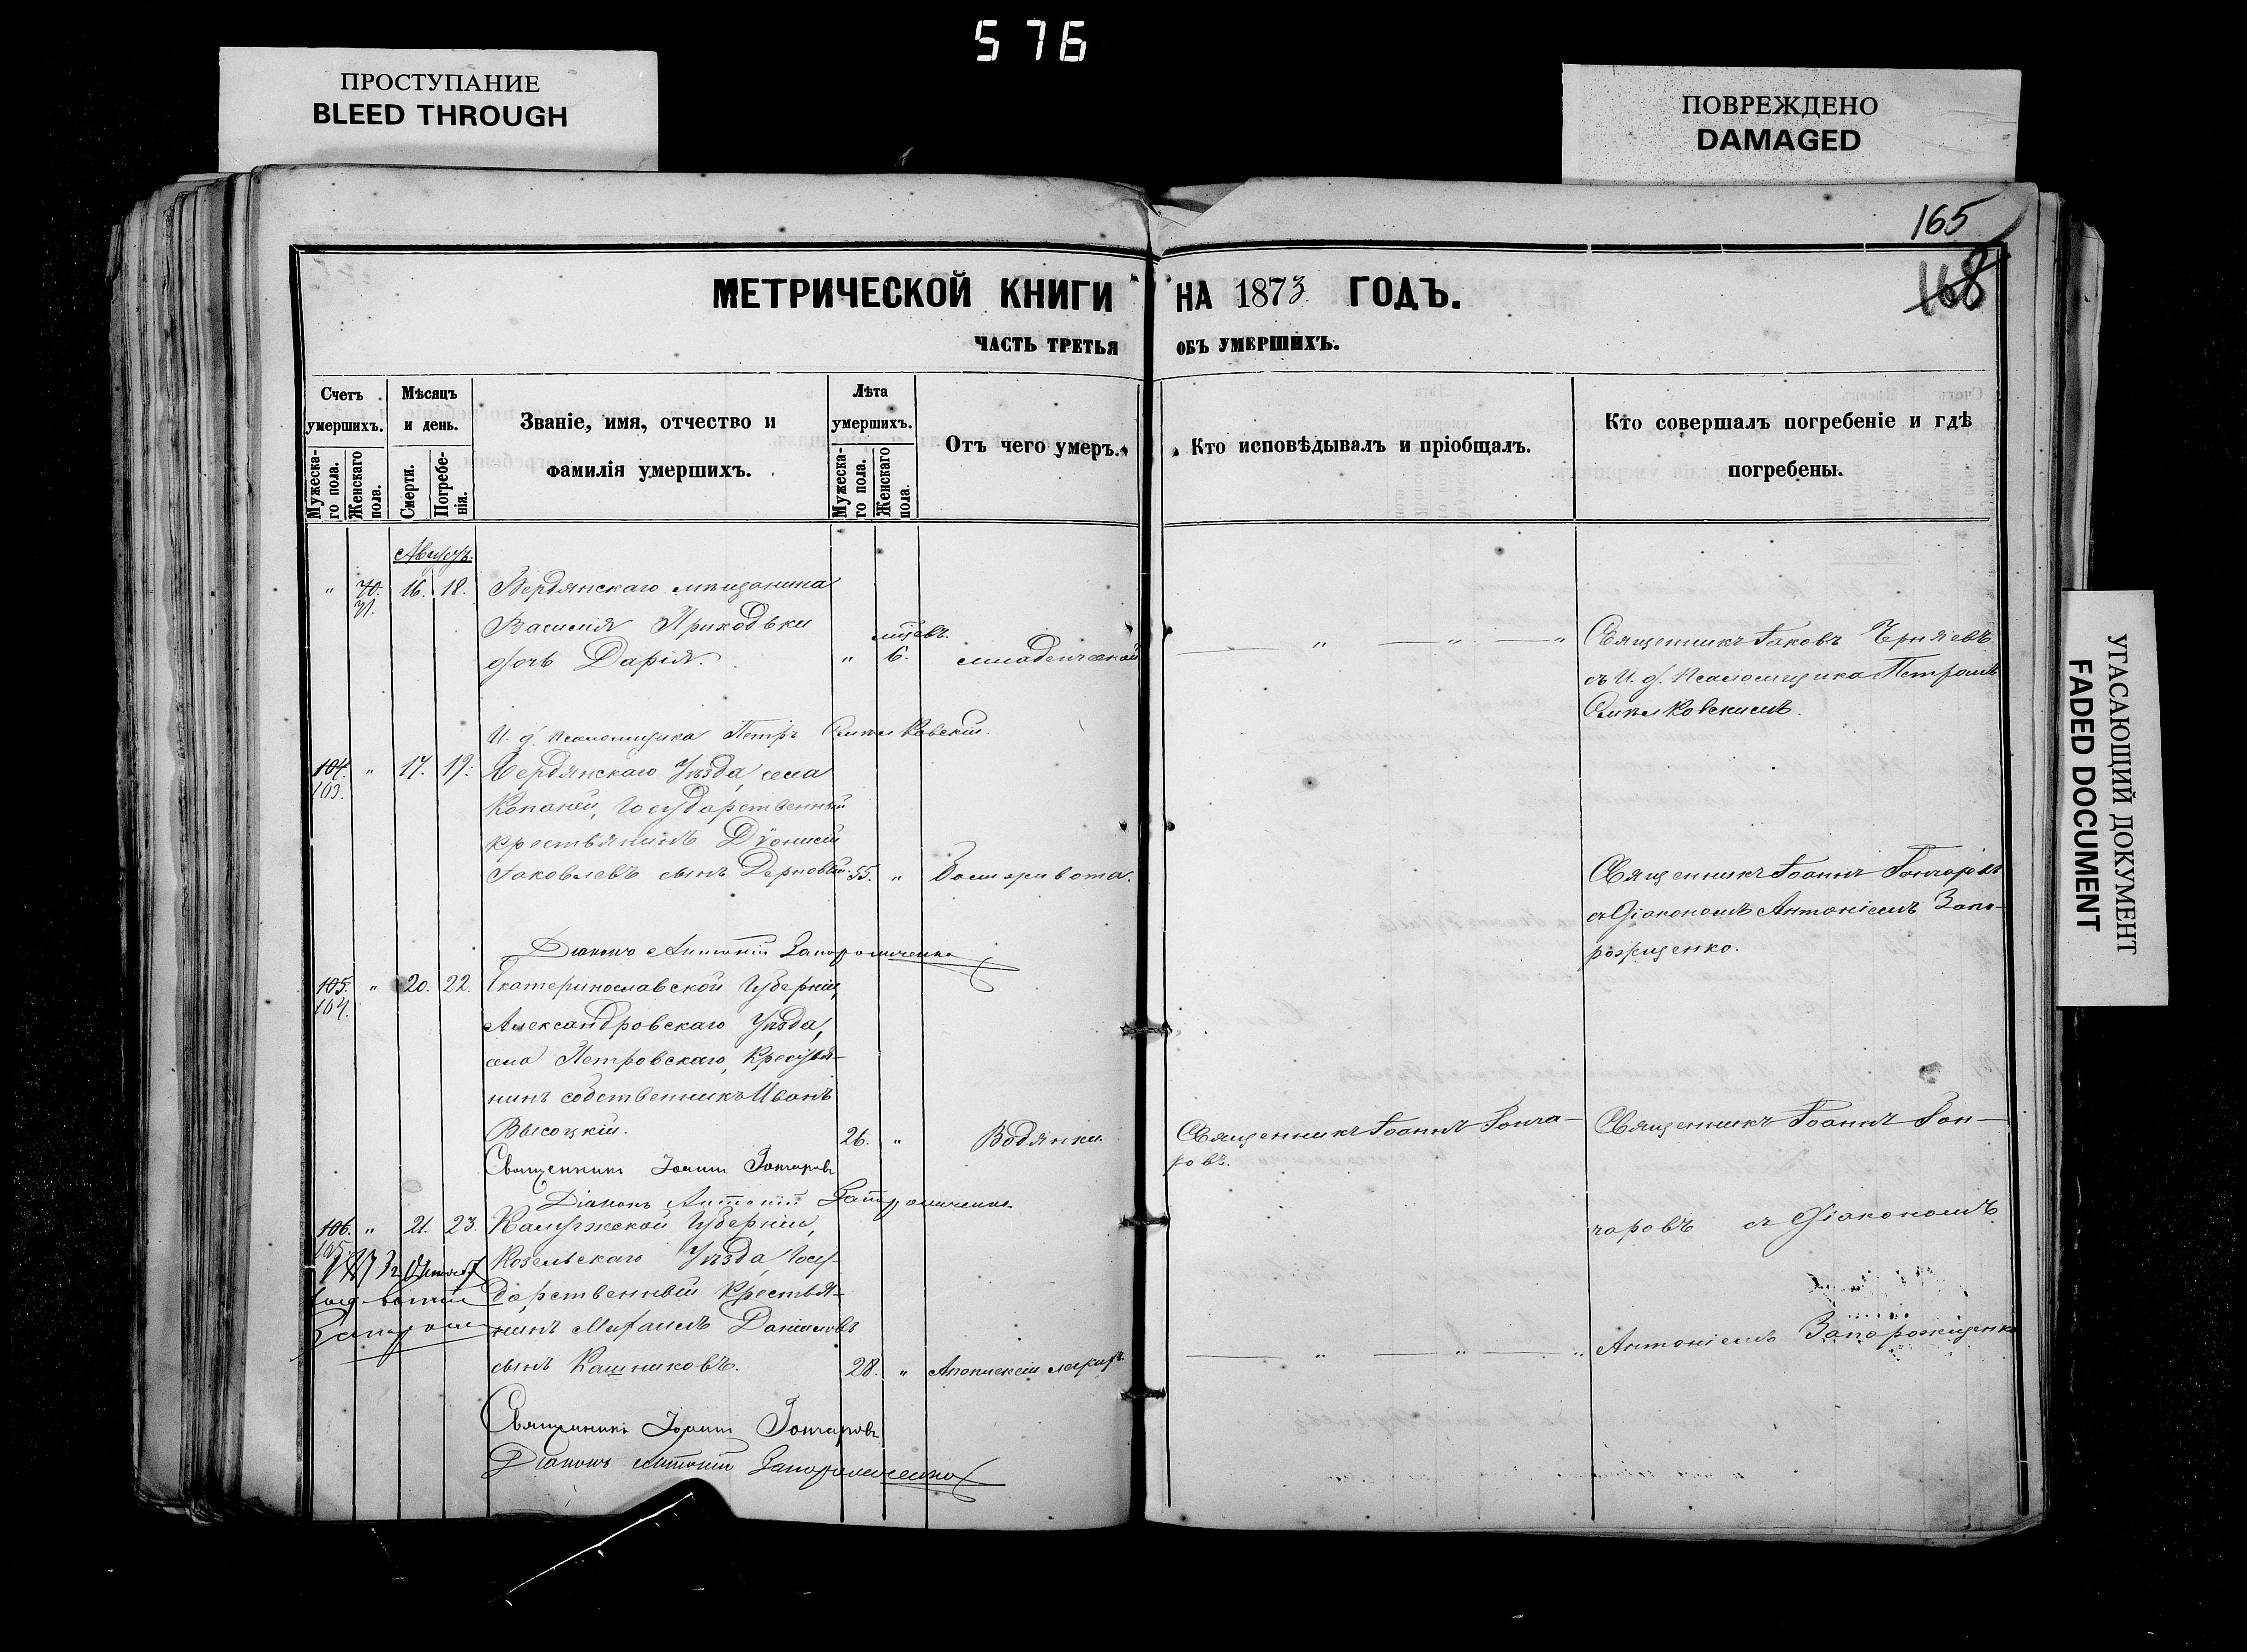 576
ПРОСТУПАНИЕ
BLEED THROUGH
ПОВРЕЖДЕНО
DAMAGED
165
168
МЕТРИЧЕСКОЙ КНИГИ НА 1873 ГОДЪ.
ЧАСТЬ ТРЕТЬЯ ОБЪ УМЕРШИХЪ.
Счетъ умершихъ.
Мужеска-
го пола.
Женскаго
пола.
Мѣсяцъ
и день.
Смерти.
Погребе-
нія.
Званіе, имя, отчество и
фамилія умершихъ.
Лѣта
умершихъ.
Мужеска-
го пола.
Женскаго
пола.
Отъ чего умеръ.
Кто исповѣдывалъ и пріобщалъ.
Кто совершалъ погребеніе и гдѣ
погребены.
Августъ.
" 70. 16. 18. Бердянскаго мѣщанина
71.
Василія Приходьки
дочь Дарія. " 6. младенческой
— " — " — "
Священникъ Іаковъ Черняевъ
съ И. д. Псаломщика Петромъ
И. д. Псаломщика Петръ
104. " 17. 19. Бердянскаго Уѣзда, села
103.
Копаней, Государственный
крестьянинъ Діонисій
Яковлевъ сынъ Дерновый. 55. " Боли живота.
Священникъ Іоаннъ Гончаровъ
съ Діакономъ Антоніемъ Запо-
рожченко.
Діаконъ Антоній Запорожченко
105. " 20. 22. Екатеринославской Губерніи,
104.
Александровскаго Уѣзда,
села Петровскаго, Крестья-
нинъ собственникъ Иванъ
Высоцкій. 26. " Водянки.
Священникъ Іоаннъ Гонча-
ровъ.
Священникъ Іоаннъ Гон-
Священникъ Іоаннъ Гончаровъ
Діаконъ Антоній Запорожченко
106. " 21. 23. Калужской Губерніи,
105.
чаровъ съ Діакономъ
Козельскаго Уѣзда, Госу-
дарственный Крестья-
нинъ Михаилъ Даніиловъ
сынъ Кашниковъ. 28. "
— " — " — "
Антоніемъ Запорожченко
Священникъ Іоаннъ Гончаровъ
Діаконъ Антоній Запорожченко
УГАСАЮЩИЙ ДОКУМЕНТ
FADED DOCUMENT